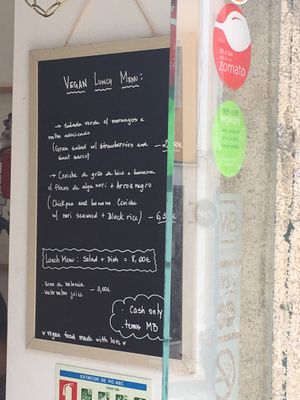 Vegan Lunch Menu:
→ Salada verde c/ morangos e
molho adocicado
(Green salad w/ strawberries and
sweet sauce)
→ Ceviche de grão de bico e banana
c/ flocos de alga nori + Arroz negro
(Chickpea and banana Ceviche
w/ nori seaweed + Black rice)
Lunch Menu: Salad + Dish = 8,00€
juice
· Cash only
· temos MB
♥ vegan food made with love ♥
zomato
MB
EXTINTOR DE PÓ ABC